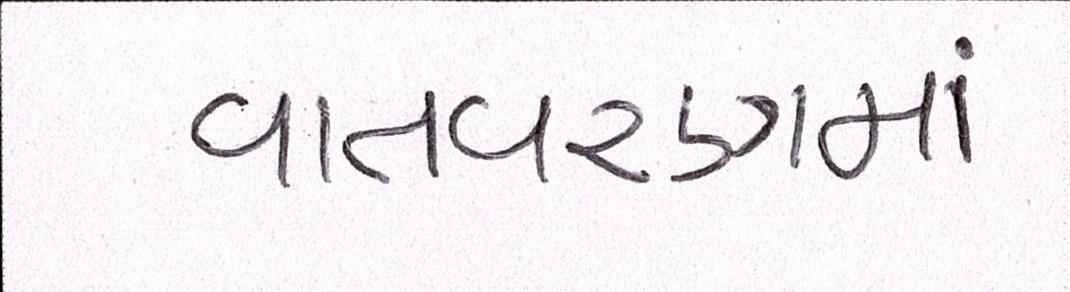 વાતવરણમાં